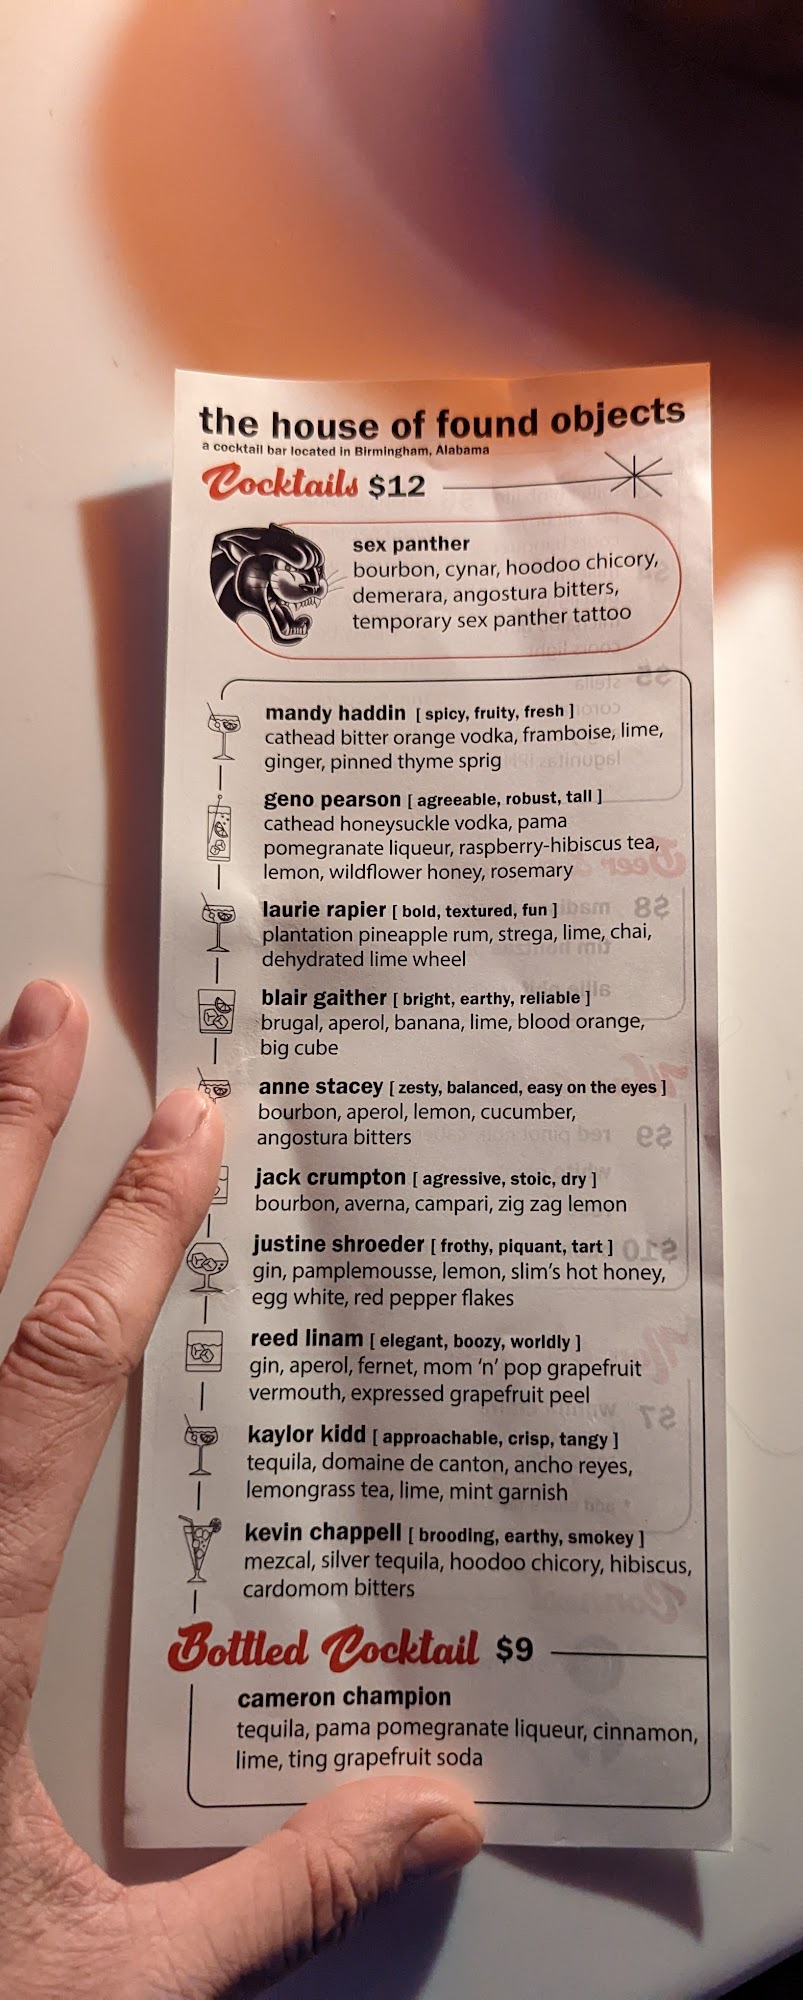 the house of found objects
a cocktail bar located in Birmingham, Alabama
Cocktails $12
sex panther
bourbon, cynar, hoodoo chicory,
demerara, angostura bitters,
temporary sex panther tattoo
mandy haddin [ spicy, fruity, fresh ]
cathead bitter orange vodka, framboise, lime,
ginger, pinned thyme sprig
geno pearson [ agreeable, robust, tall ]
cathead honeysuckle vodka, pama
pomegranate liqueur, raspberry-hibiscus tea,
lemon, wildflower honey, rosemary
laurie rapier [ bold, textured, fun ]
plantation pineapple rum, strega, lime, chai,
dehydrated lime wheel
blair gaither [ bright, earthy, reliable ]
brugal, aperol, banana, lime, blood orange,
big cube
anne stacey [ zesty, balanced, easy on the eyes ]
bourbon, aperol, lemon, cucumber,
angostura bitters
jack crumpton [ agressive, stoic, dry ]
bourbon, averna, campari, zig zag lemon
justine shroeder [ frothy, piquant, tart ]
gin, pamplemousse, lemon, slim's hot honey,
egg white, red pepper flakes
reed linam [ elegant, boozy, worldly ]
gin, aperol, fernet, mom 'n' pop grapefruit
vermouth, expressed grapefruit peel
kaylor kidd [ approachable, crisp, tangy ]
tequila, domaine de canton, ancho reyes,
lemongrass tea, lime, mint garnish
kevin chappell [ brooding, earthy, smokey ]
mezcal, silver tequila, hoodoo chicory, hibiscus,
cardomom bitters
Bottled Cocktail $9
cameron champion
tequila, pama pomegranate liqueur, cinnamon,
lime, ting grapefruit soda